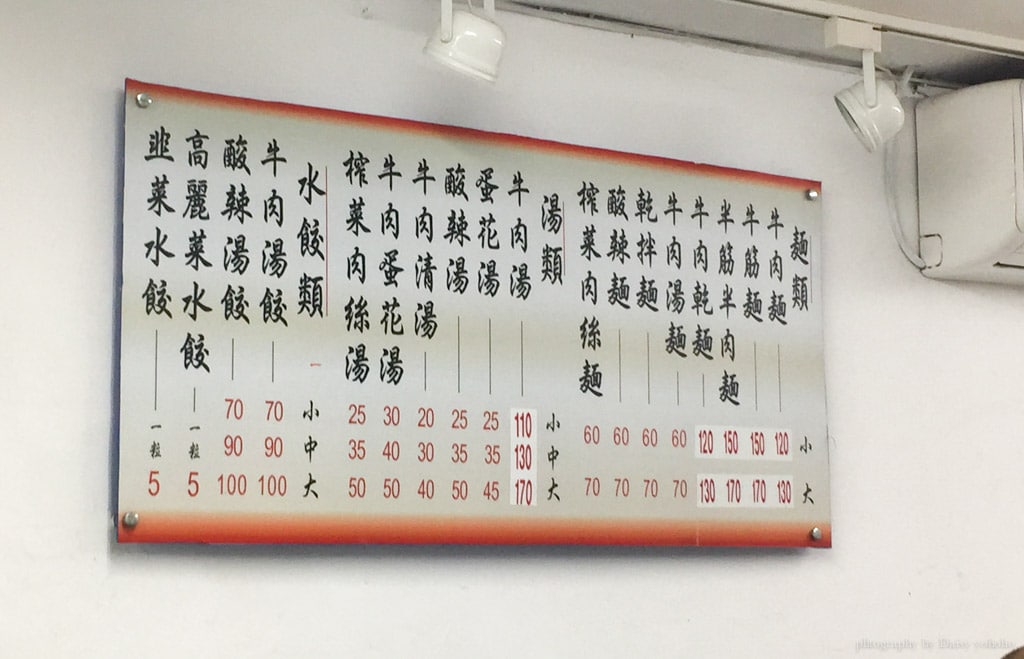 麵類 小 大
牛肉麵 120 130
牛筋麵 150 170
半筋半肉麵 150 170
牛肉乾麵 120 130
牛肉湯麵 60 70
乾拌麵 60 70
酸辣麵 60 70
榨菜肉絲麵 60 70
湯類 小 中 大
牛肉湯 110 130 170
蛋花湯 25 35 45
酸辣湯 25 35 50
牛肉清湯 20 30 40
牛肉蛋花湯 30 40 50
榨菜肉絲湯 25 35 50
水餃類 小 中 大
牛肉湯餃 70 90 100
酸辣湯餃 70 90 100
高麗菜水餃 一粒 5
韭菜水餃 一粒 5
photography by Daisy yohoho